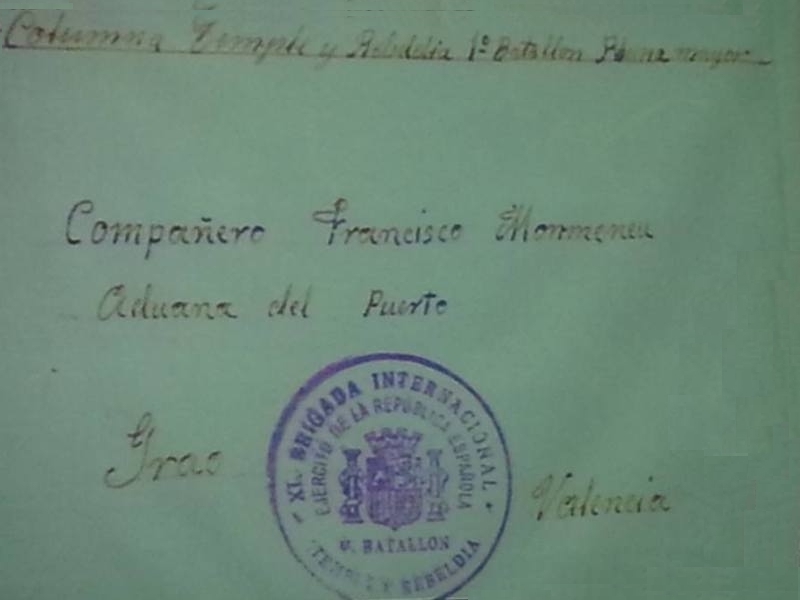 Columna Temple y Rebeldia 1º Batallon Plana mayor
Compañero Francisco Monmeneu
Aduana del Puerto
Grao
Valencia
XI. BRIGADA INTERNACIONAL
EJERCITO DE LA REPUBLICA ESPAÑOLA
BATALLON
TEMPLE Y REBELDIA